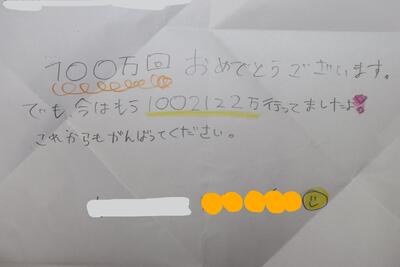 100万回 おめでとうございます。
でも、今はもう1002122万行ってましたよ!
これからもがんばってください。